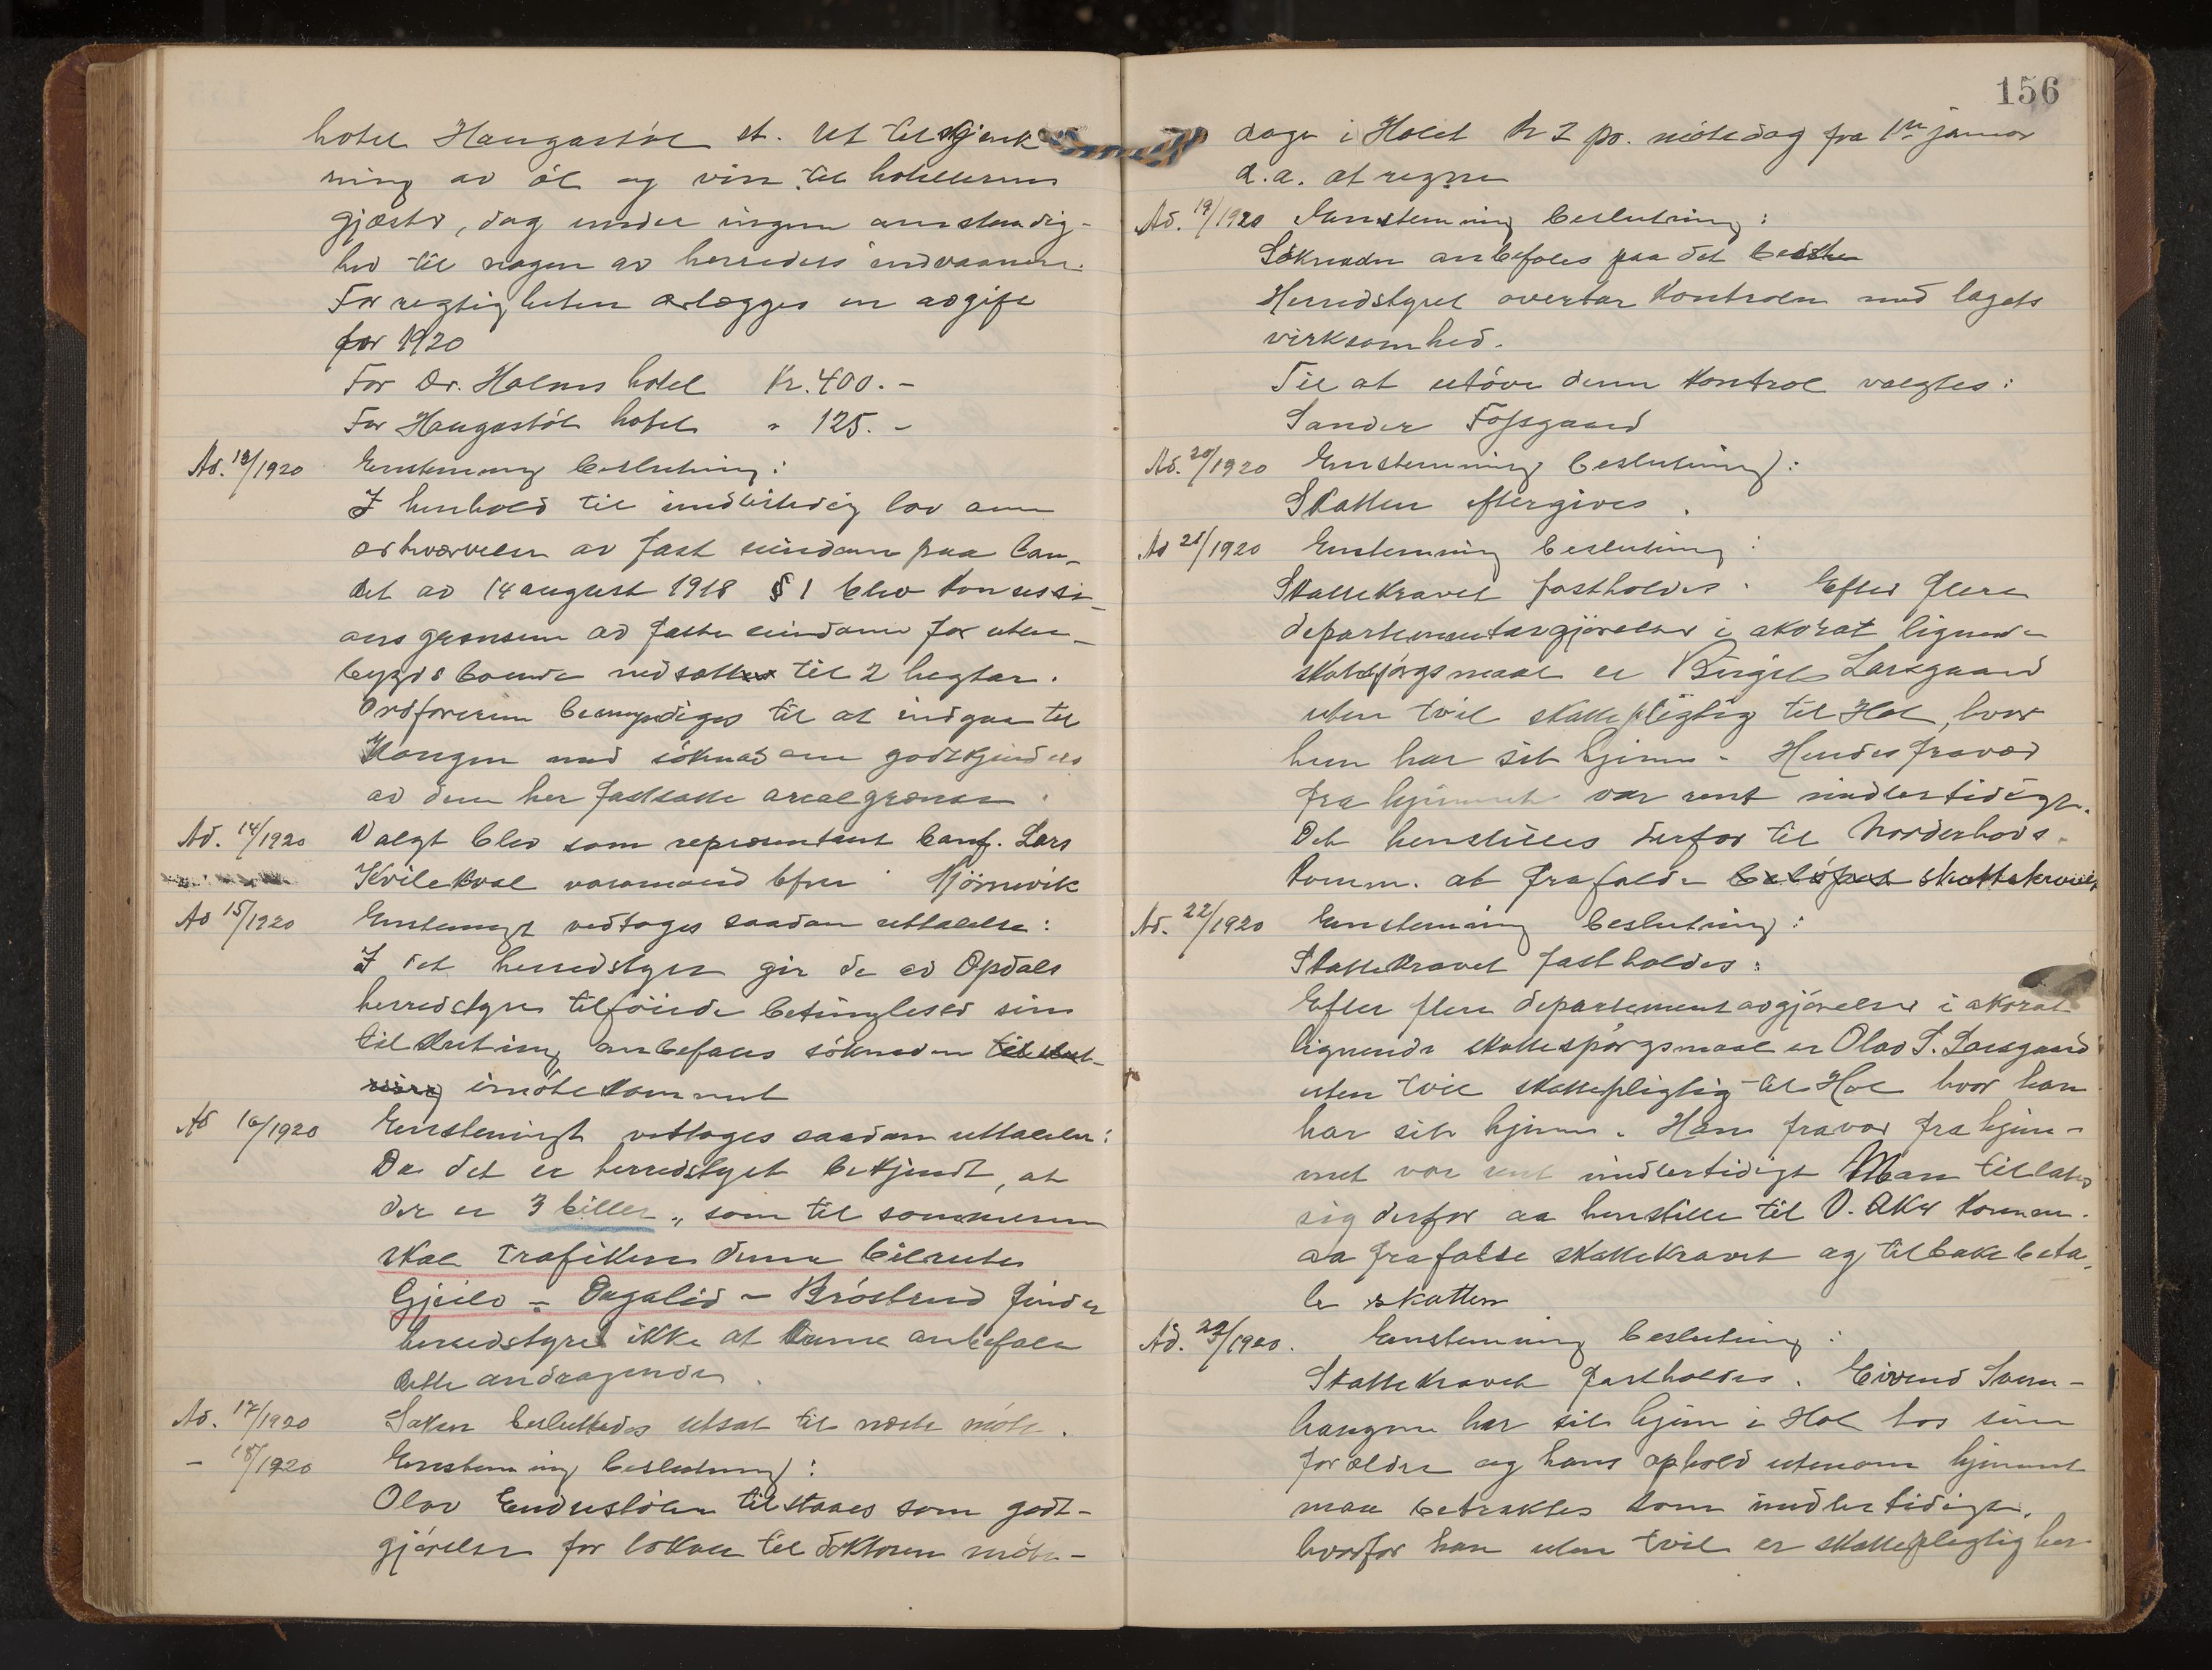 hotel Haugastøl st. ret til skjænk
ning av øl og vin til hotellernes
gjæster, dog under ingen omstændig-
hed til nogen av herredets indvaanere.
For rettigheten erlægges en avgift
for 1920
For Dr. Holms hotel Kr. 400.-
For Haugastøl hotel " 125.-
Ad. 13/1920 Enstemmig beslutning:
I henhold til midlertidig lov om
erhvervelse av fast eiendom paa lan-
det av 14 august 1918 § 1 blev konsessi-
ons grænsen av faste eiendome for uten-
bygds boende nedsatt til 2 hegtar.
Ordføreren bemyndiges til at indgaa til
Kongen med søknad om godkjendelse
av den her fastsatte arealgrænse.
Ad. 14/1920 Valgt blev som repræsentant banf. Lars
Kvilekval varamand Bfm Njørnevik
Ad 15/1920 Enstemmigt vedtoges saadan uttalelse:
I det herredstyret gir de av Opdals
herredstyre tilføiede betingelser sin
tilslutning anbefales søknaden tilslut-
ning imøtekommet
Ad 16/1920 Enstemmigt vedtoges saadan uttalelse:
Da det er herredstyret bekjendt, at
der er 3 biller „ som til sommeren
skal trafikere denne bilrute
Gjeilo - Dagalid - Brøstrud finder
herredstyret ikke at kunne anbefale
dette andragende.
Ad. 17/1920 Saken besluttedes utsat til næste møte.
- 18/1920 Enstemmig beslutning:
Olav Endrestølen tilstaaes som godt-
gjørelse for lokale til doktoren møte-
156
dage i Holet kr 2 pr. møtedag fra 1ste januar
d.a. at regne
Ad. 19/1920 Enstemmig beslutning:
Søknaden anbefales paa det bedste
Herredstyret overtar kontrolen med lagets
virksomhed.
Til at utøve denne kontrol valgtes:
Sander Fossgaard
Ad. 20/1920 Enstemmig beslutning:
Skatten eftergives.
Ad 21/1920 Enstemmig beslutning:
Skattekravet fastholdes. Efter flere
departementavgjørelser i akorat lignende
skatespørgsmaal er Birgit Larsgaard
uten tvil skattepligtig til Hol, hvor
hun har sit hjem. Hendes fravær
fra hjemmet var rent midlertidigt.
Det henstilles derfor til Norderhovs
komm. at frafalde beløpet skattekravet
Ad. 22/1920 Enstemmig beslutning:
Skattekravet fastholdes:
Efter flere departementsavgjørelser i akorat
lignende skattespørgsmaal er Olav S. Larsgaard
uten tvil skattepligtig til Hol hvor han
har sit hjem. Hans fravær fra hjem-
met var rent midlertidigt Man tillater
sig derfor aa henstille til V. Aker komm.
aa frafalde skattekravet og tilbakebeta-
le skatten
Ad. 23/1920. Enstemmig beslutning:
Skattekravet fastholdes. Eivind Svein-
haugen har sit hjem i Hol hos sine
forældre og hans ophold utenom hjemmet
maa betraktes som midlertidigt,
hvorfor han uten tvil er skattepligtig her